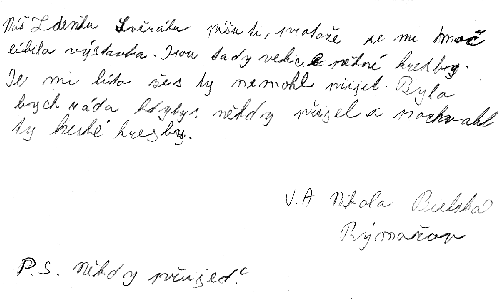 Náš Zdeňku Svěráku píšu ti, protože se mi moc
líbila výstava. Jsou tady velice něžné kresby.
Je mi líto žes ty nemohl přijet. Byla
bych ráda kdybys někdy přijel a pochválil
ty hezké kresby.
V.A Nikola
Rýmařov
P.S. Někdy přijeď!